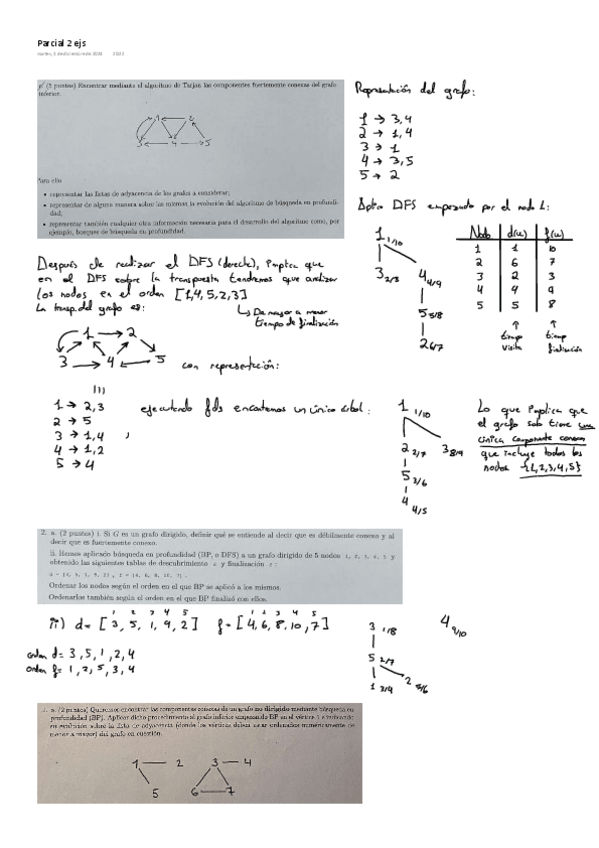 Parcial 2 ejs
(2 puntos) Encontrar mediante el algoritmo de Tarjan las componentes fuertemente conexas del grafo
inferior.
1 2
3 4 5
Para ello
• representar las listas de adyacencia de los grafos a considerar;
• representar de alguna manera sobre las mismas la evolución del algoritmo de búsqueda en profundi-
dad;
• representar también cualquier otra información necesaria para el desarrollo del algoritmo como, por
ejemplo, bosques de búsqueda en profundidad.
Representación del grafo:
1 → 3,4
2 → 1,4
3 → 1
4 → 3,5
5 → 2
DFS empezando por el nodo 1:
1 1/10
3 2/3
4 4/9
5 5/8
2 6/7
Nodo d(u) f(u)
1 1 10
2 6 7
3 2 3
4 4 9
5 5 8
↑ ↑
tiemp tiemp
visita finalización
Después de realizar el DFS (derecha), implica que
en el DFS sobre la transpuesta tendremos que analizar
los nodos en el orden [1,4,5,2,3]
↳ De mayor a menor
tiempo de finalización
La transp. del grafo es:
1 → 2
3 → 4 ← 5
con representación:
1 → 2,3
2 → 5
3 → 1,4
4 → 1,2
5 → 4
ejecutando dfs encontramos un único árbol:
1 1/10
2 2/7
3 8/9
5 3/6
4 4/5
Lo que implica que
el grafo solo tiene una
única componente conexa
que incluye todos los
nodos {1,2,3,4,5}
2. a. (2 puntos) i. Si G es un grafo dirigido, definir qué se entiende al decir que es débilmente conexo y al
decir que es fuertemente conexo.
ii. Hemos aplicado búsqueda en profundidad (BP, o DFS) a un grafo dirigido de 5 nodos 1, 2, 3, 4, 5 y
obtenido las siguientes tablas de descubrimiento d y finalización f:
d = [3, 5, 1, 9, 2], f = [4, 6, 8, 10, 7].
Ordenar los nodos según el orden en el que BP se aplicó a los mismos.
Ordenarlos también según el orden en el que BP finalizó con ellos.
1 2 3 4 5 1 2 3 4 5
ii) d= [3, 5, 1, 9, 2] f= [4, 6, 8, 10, 7]
orden d= 3, 5, 1, 2, 4
orden f= 1, 2, 5, 3, 4
3 1/8
5 2/7
1 3/4
2 5/6
4 9/10
a. (2 puntos) Queremos encontrar las componentes conexas de un grafo no dirigido mediante búsqueda en
profundidad (BP). Aplicar dicho procedimiento al grafo inferior empezando BP en el vértice 1 e indicando
su evolución sobre la lista de adyacencia (donde los vértices deben estar ordenados numéricamente de
menor a mayor) del grafo en cuestión.
1 2 3 4
5 6 7